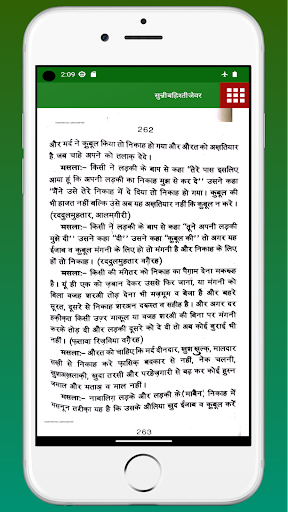 2:09
सुन्नी बहिश्ती जेवर
262
और मर्द ने कुबूल किया तो निकाह हो गया और औरत को अख़्तियार
है. जब चाहे अपने को तलाक़ देदे।
मसलाः- किसी ने लड़की के बाप से कहा "तेरे पास इसलिए
आया हूं कि अपनी लड़की का निकाह मुझ से कर दे" उसने कहा
"मैंने उसे तेरे निकाह में दे दिया तो निकाह हो गया। कुबूल की
भी हाजत नहीं बल्कि उसे अब यह अख़्तियार नहीं कि कुबूल न करे।
(रददुलमुहतार, आलमगीरी)
मसलाः- किसी ने लड़की के बाप से कहा "तूने अपनी लड़की
मुझे दी" उसने कहा "दी" उसने कहा "कुबूल की" तो अगर यह
ईजाब व कुबूल मंगनी के लिए हो तो मंगनी है और निकाह के लिए हो
तो निकाह। (रददुलमुहतार वग़ैरह)
मसलाः- किसी की मंगेतर को निकाह का पैग़ाम देना मकरूह
है। यूं ही एक को ज़बान देकर उससे फिर जाना, या मंगनी को
बिला वजह शरओ तोड़ देना भी मज़मूम व बेजा है और बहरे
सूरत, दूसरे से निकाह शरअन दुरूस्त व सहीह है। और अगर दर
हक़ीक़त किसी उज़्र माकूल या वजह शरओ की बिना पर मंगनी
करके तोड़ दी और लड़की दूसरे को दे दी तो अब कोई बुराई भी
नहीं। (फ़तावा रिज़विया वग़ैरह)
मसलाः- औरत को चाहिए कि मर्द दीनदार, खुश खुल्क़, मालदार
सख़ी से निकाह करे फ़ासिक़ बदकार से नहीं, नेक चलनी,
खुशअख़लाक़ी, खुदा तरसी और परहेज़गारी से बढ़ कर कोई हुस्न
जमाल और मताअ व माल नहीं।
मसलाः- नाबालिग़ लड़के और लड़की के (माबैन) निकाह में
मसनून तरीक़ा यह है कि उसके औलिया खुद ईजाब व कुबूल करें
263